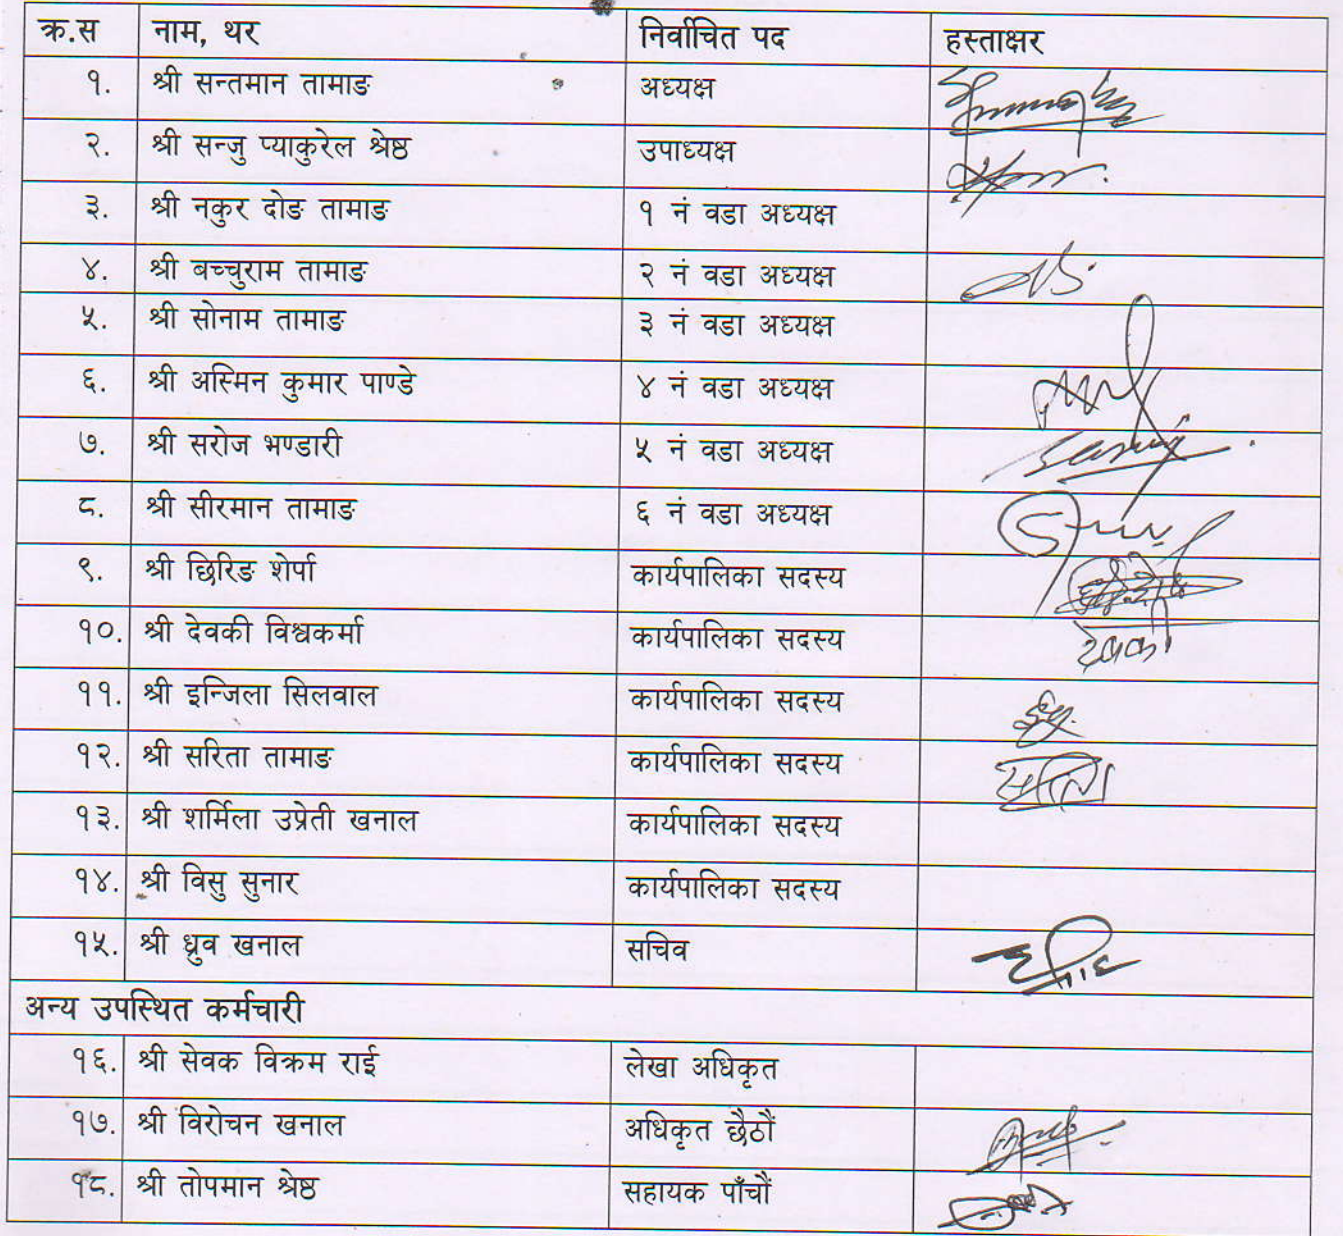 क्र.स नाम, थर निर्वाचित पद हस्ताक्षर
१. श्री सन्तमान तामाङ अध्यक्ष
२. श्री सन्जु प्याकुरेल श्रेष्ठ उपाध्यक्ष
३. श्री नकुर दोङ तामाङ १ नं वडा अध्यक्ष
४. श्री बच्चुराम तामाङ २ नं वडा अध्यक्ष
५. श्री सोनाम तामाङ ३ नं वडा अध्यक्ष
६. श्री अस्मिन कुमार पाण्डे ४ नं वडा अध्यक्ष
७. श्री सरोज भण्डारी ५ नं वडा अध्यक्ष
८. श्री सीरमान तामाङ ६ नं वडा अध्यक्ष
९. श्री छिरिङ शेर्पा कार्यपालिका सदस्य
१०. श्री देवकी विश्वकर्मा कार्यपालिका सदस्य देवकी
११. श्री इन्जिला सिलवाल कार्यपालिका सदस्य
१२. श्री सरिता तामाङ कार्यपालिका सदस्य
१३. श्री शर्मिला उप्रेती खनाल कार्यपालिका सदस्य
१४. श्री विसु सुनार कार्यपालिका सदस्य
१५. श्री ध्रुव खनाल सचिव
अन्य उपस्थित कर्मचारी
१६. श्री सेवक विक्रम राई लेखा अधिकृत
१७. श्री विरोचन खनाल अधिकृत छैठौं
१८. श्री तोपमान श्रेष्ठ सहायक पाँचौं